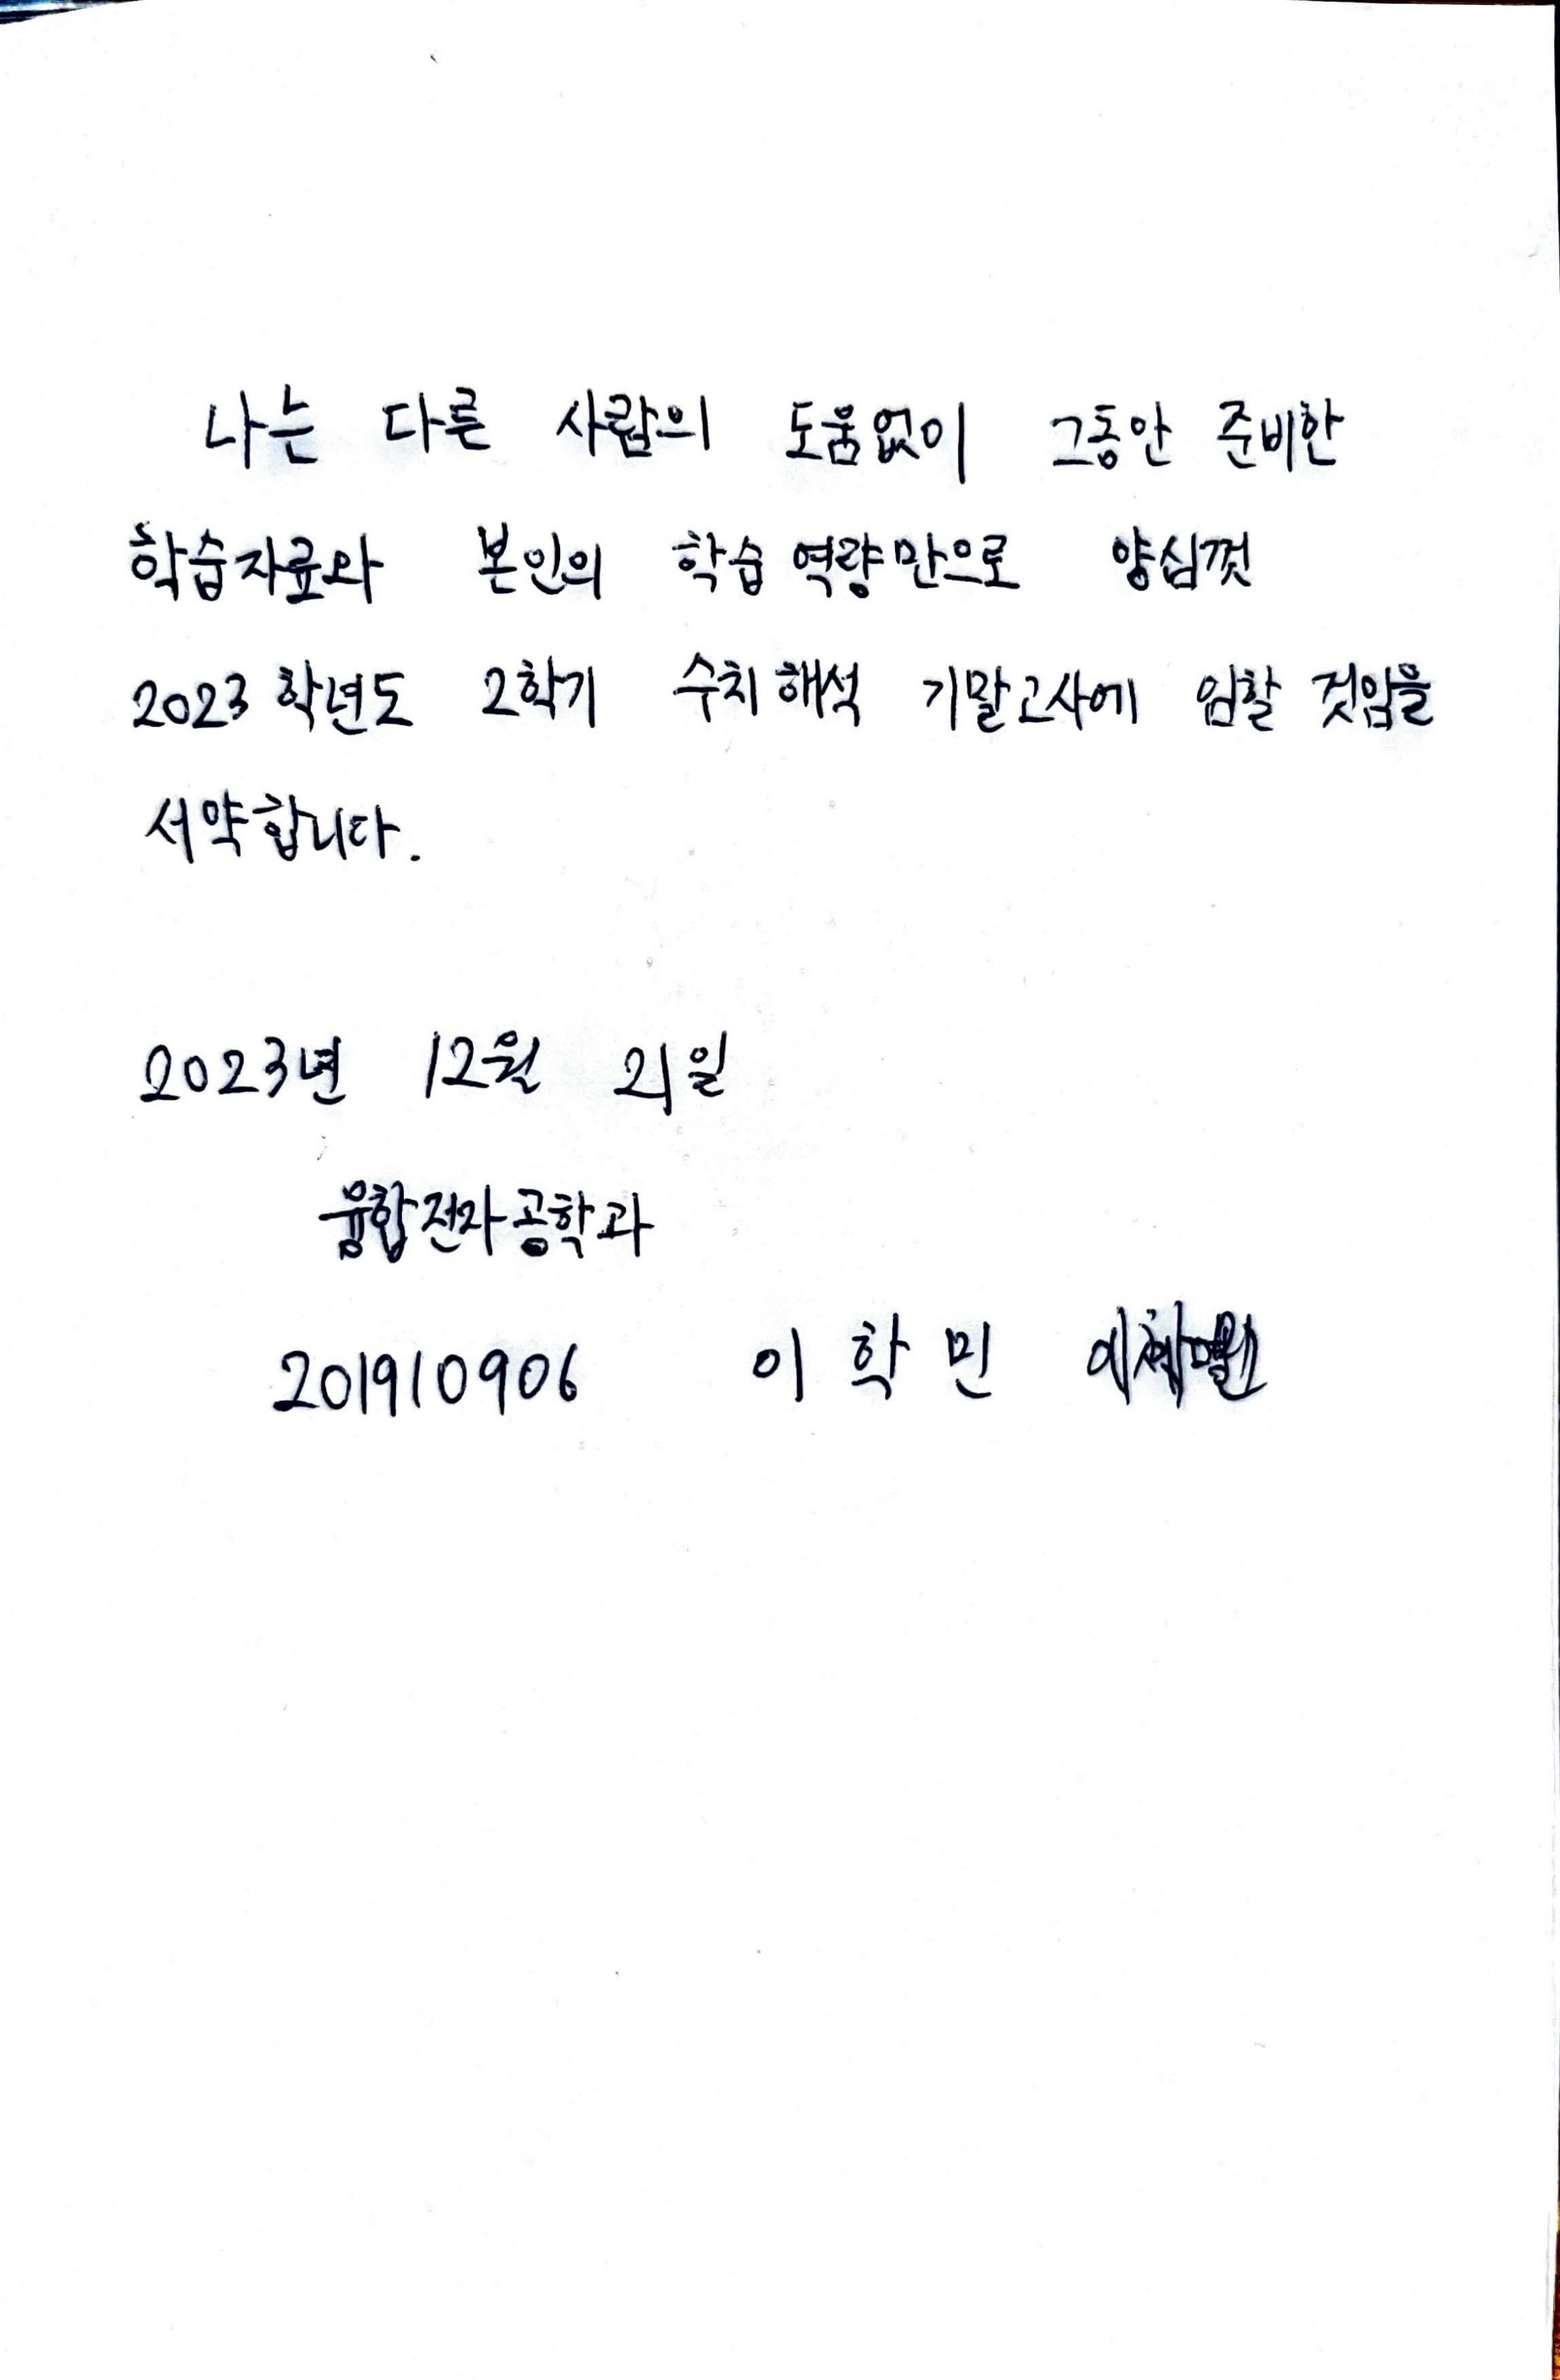 나는 다른 사람의 도움없이 그동안 준비한
학습자료와 본인의 학습 역량만으로 양심껏
2023 학년도 2학기 수치해석 기말고사에 임할 것임을
서약합니다.
2023년 12월 21일
융합전자공학과
201910906 이 학 민